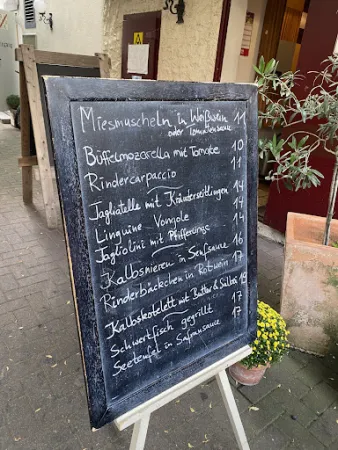 Miesmuscheln in Weißwein 11
oder Tomatensauce
Büffelmozarella mit Tomate 10
Rindercarpaccio 11
Tagliatelle mit Kräuterseitlingen 14
Linguine Vongole 14
Tagliolini mit Pfifferlings 14
Kalbsnieren in Senfsauce 16
Rinderbäckchen in Rotwein 17
Kalbskotelett mit Butter & Salbei 19
Schwertfisch gegrillt 17
Seeteufel in Safransauce 17